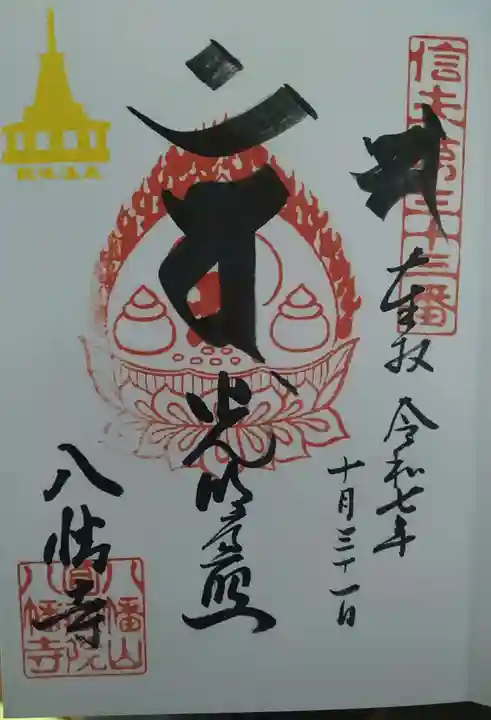 信夫第三十三番
奉拝 令和七年
十月三十一日
光明遍照
八幡寺
八幡山
院
八幡寺